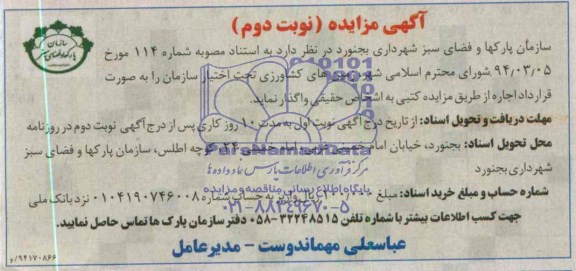 آگهی مزایده (نوبت دوم)
سازمان پارکها و فضای سبز شهرداری بجنورد در نظر دارد به استناد مصوبه شماره ۱۱۴ مورخ
۹۴،۰۳،۰۵ شورای محترم اسلامی شهر، زمین های کشاورزی تحت اختیار سازمان را به صورت
قرارداد اجاره از طریق مزایده کتبی به اشخاص حقیقی واگذار نماید.
مهلت دریافت و تحویل اسناد: از تاریخ درج آگهی نوبت اول به مدت ۱۰ روز کاری پس از درج آگهی نوبت دوم در روزنامه
محل تحویل اسناد: بجنورد، خیابان امام خمینی غربی، امام خمینی ۲۴، کوچه اطلس، سازمان پارکها و فضای سبز
شهرداری بجنورد
شماره حساب و مبلغ خرید اسناد: مبلغ ریال واریز به حساب شماره ۰۱۰۴۱۹۰۷۴۶۰۰۸ نزد بانک ملی
جهت کسب اطلاعات بیشتر با شماره تلفن ۳۲۲۴۸۵۱۵-۰۵۸ دفتر سازمان پارک ها تماس حاصل نمایید.
عباسعلی مهماندوست - مدیرعامل
۹۴۱۷۰۸۶۶/و
سازمان پارکها و فضای سبز
ParsNamadData
مرکز فرآوری اطلاعات پارس نماد داده ها
پایگاه اطلاع رسانی مناقصه و مزایده
۰۲۱-۸۸۳۴۹۶۷۰-۵